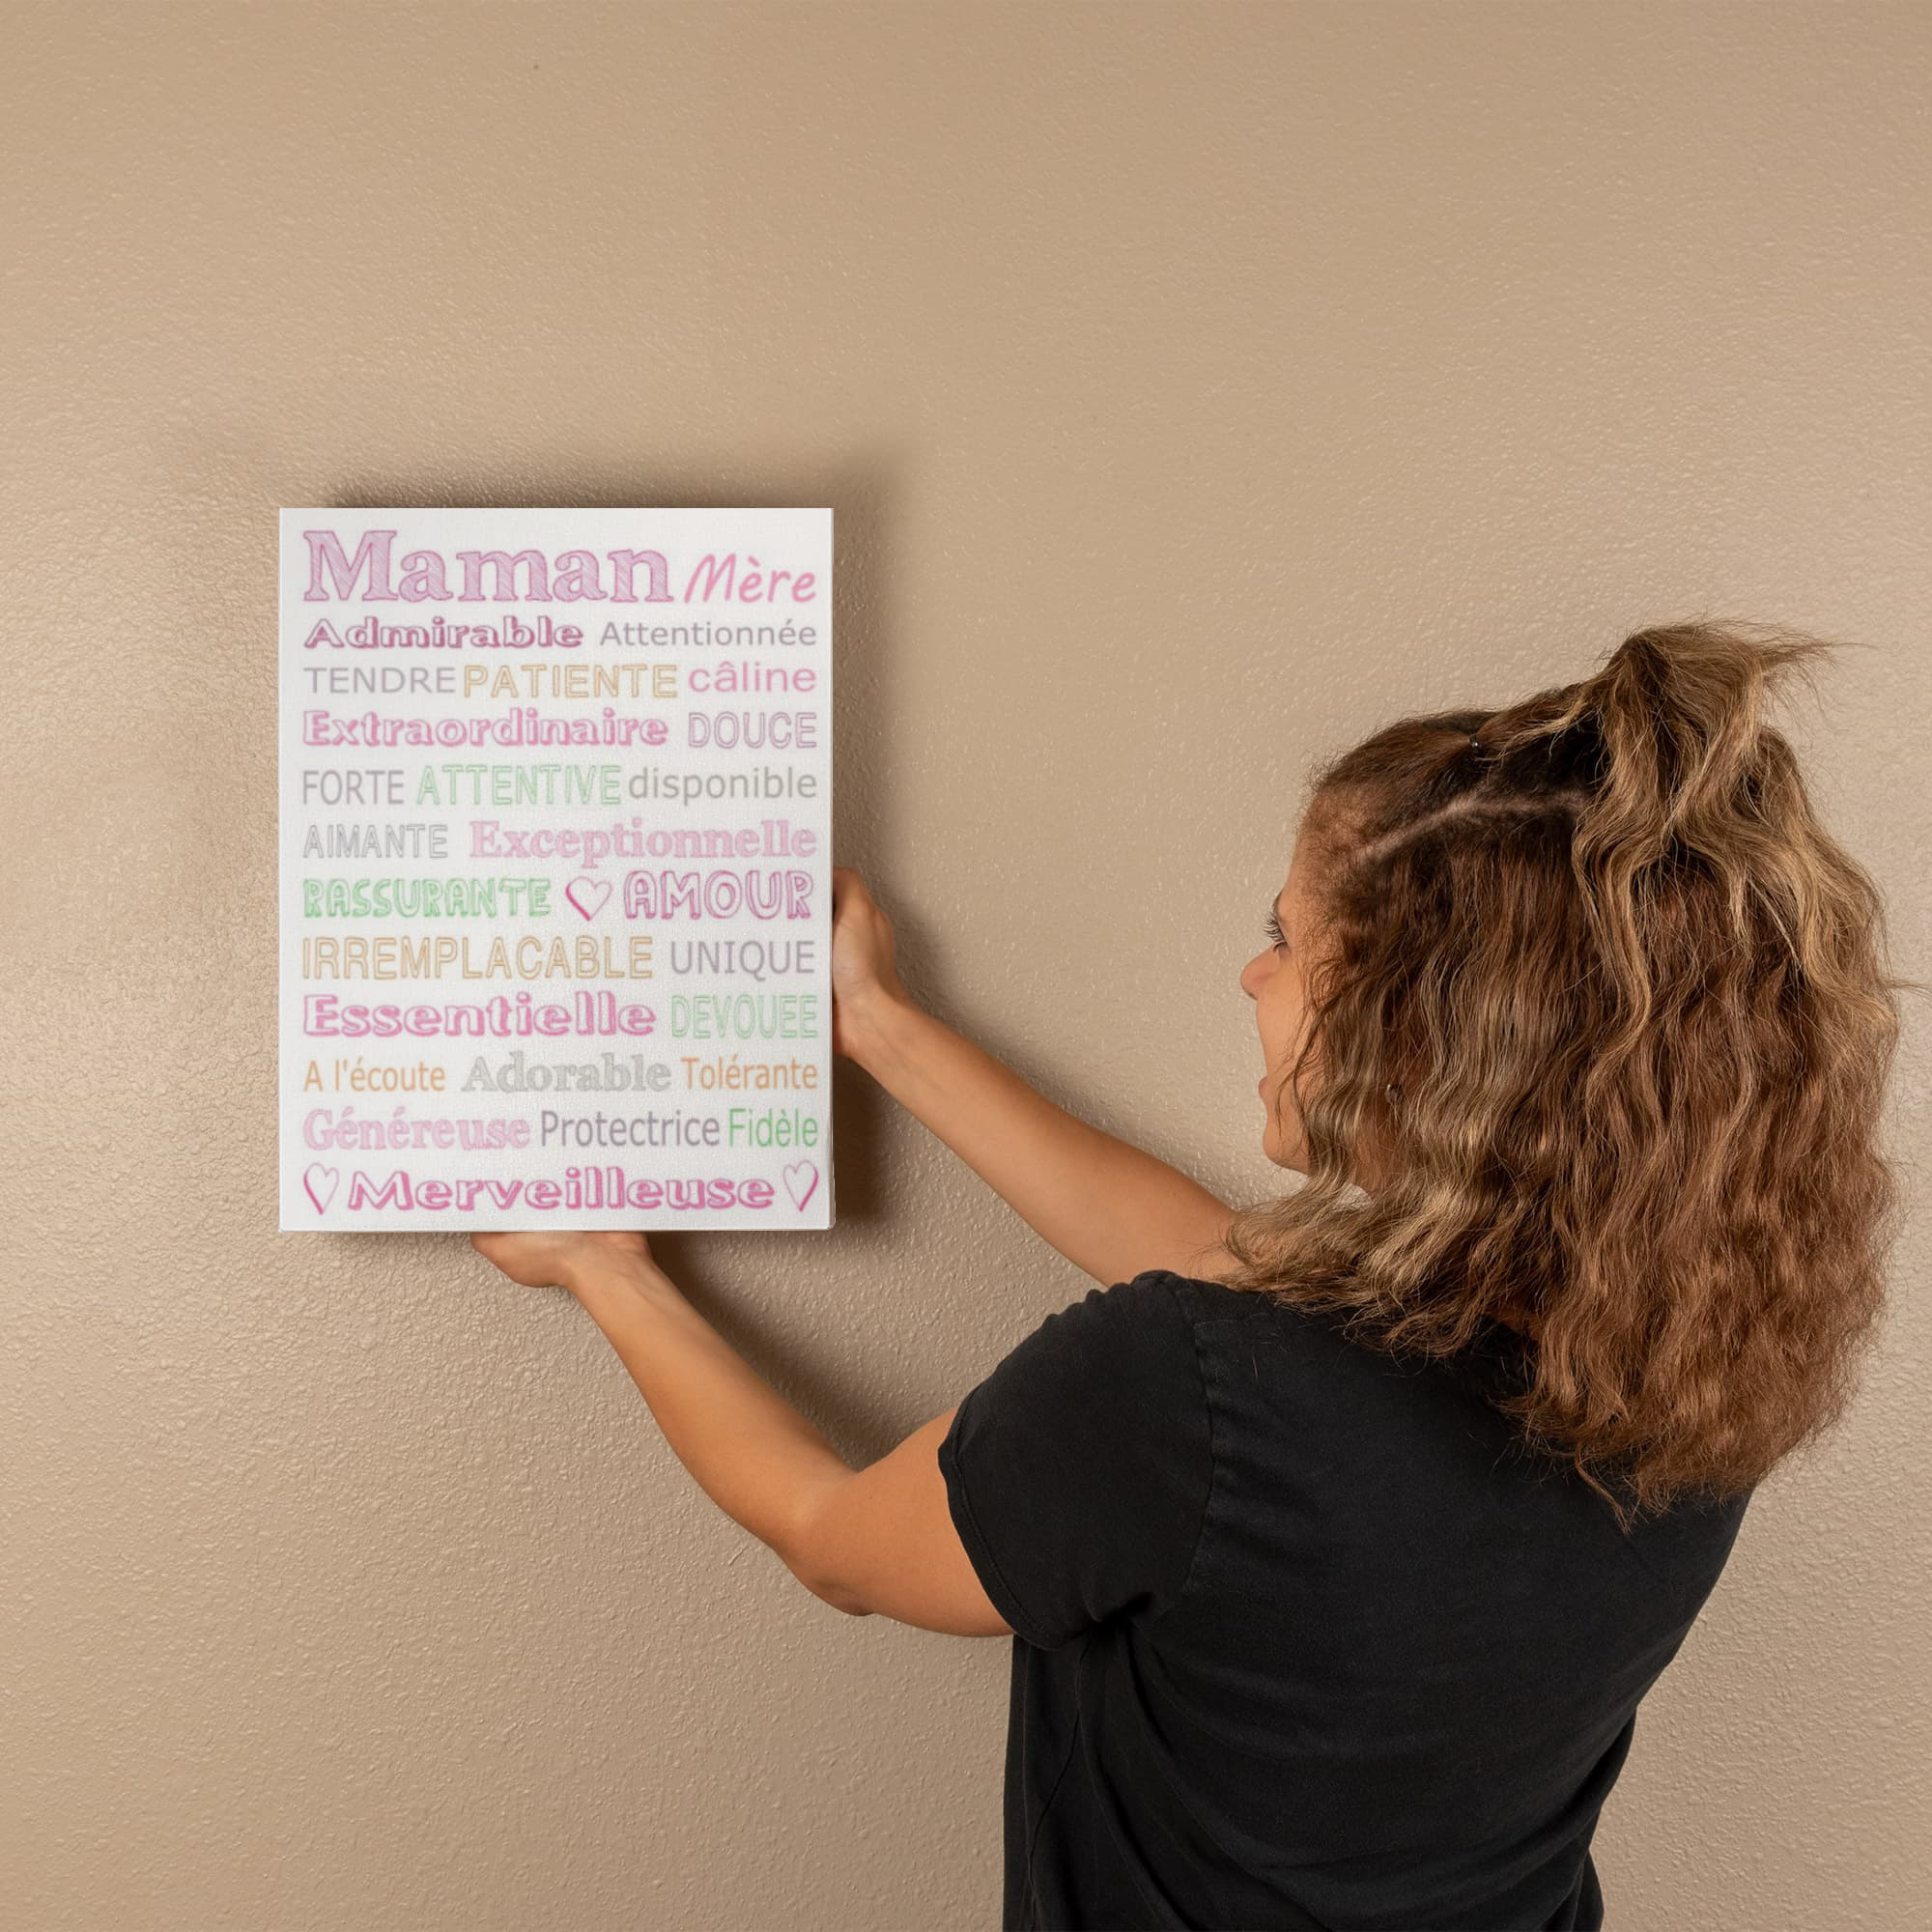 Maman Mère
Admirable Attentionnée
TENDRE PATIENTE câline
Extraordinaire DOUCE
FORTE ATTENTIVE disponible
AIMANTE Exceptionnelle
RASSURANTE ♡ AMOUR
IRREMPLACABLE UNIQUE
Essentielle DEVOUEE
A l'écoute Adorable Tolérante
Généreuse Protectrice Fidèle
♡ Merveilleuse ♡